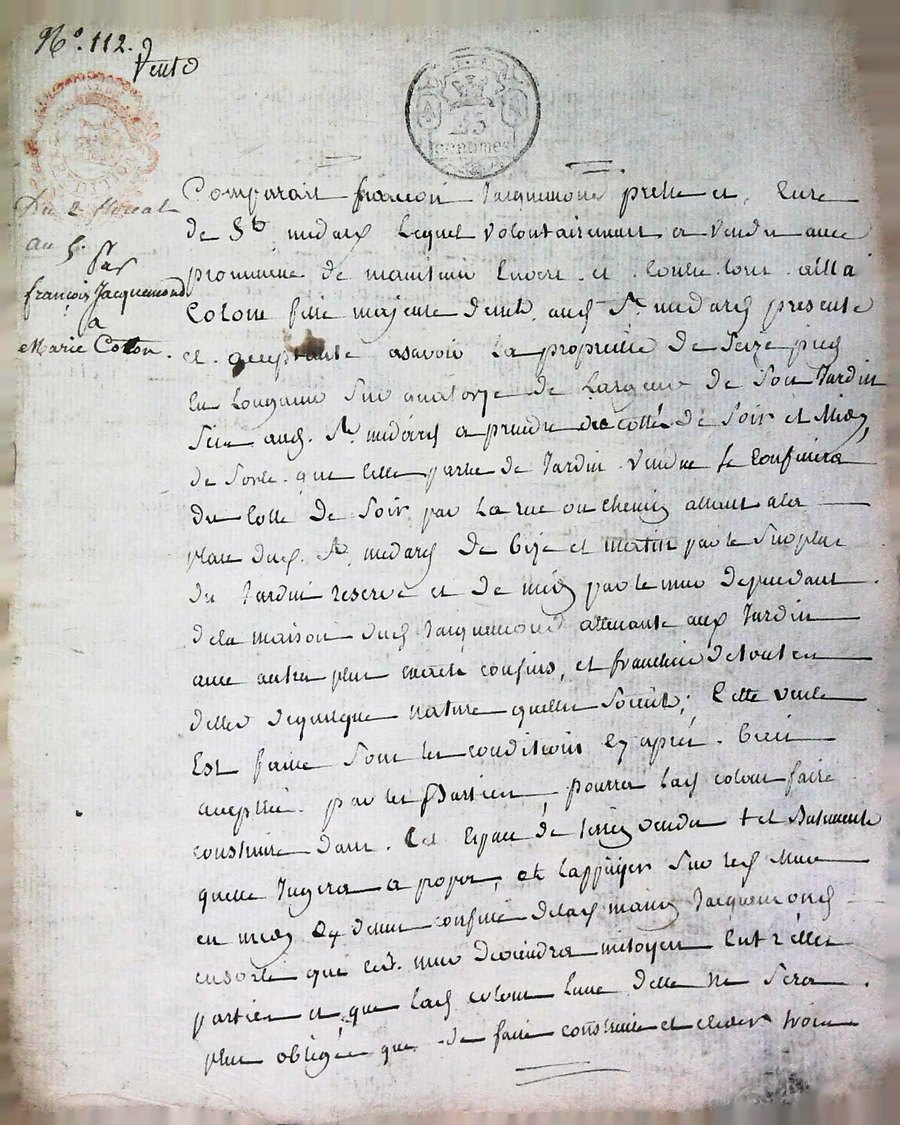 N.º 112.
Vente
25
centimes
Du 2 floreal
an 5. Par
françois Jacquemond
a
Marie Cotton.
Comparait françois Jacquemond prêtre et Curé
de St. medard Lequel volontairement a vendu avec
promesse de maintenir Envers et Contre tous a
Colone fille majeure dud. St. medard presente
et acceptante asavoir La propriete de Seize pieds
En Longueur Sur quatorze de Largeur de Son Jardin
Situé aud. St. medard a prendre des cottés de Soir et Midy
de Sorte que Celle partie de Jardin vendue Se Confinera
du Cotté de Soir par La rue ou chemin allant ala
place dud. St. medard de bize et matin par le Surplus
du Jardin reservé et de midy par le mur dependant
dela maison dud Jacquemond attenante aud Jardin
avec autres plus confins, et franchise detouten
dettes dequelque nature quelles Soient; Cette vente
Est faitte Sous les conditions cy après. bien
acceptée par les Parties, pourra Lad colone faire
construire dans Cet Espace de terrein vendu tel Batiments
quelle Jugera a propos, et Lappuyer Sur led Mur
en midy cy devant confiné delad maison Jacquemond
ensorte que led. mur deviendra mitoyen Entr'elles
parties et que Lad colone Lune delle ne Sera
plus obligée que de faire construire et